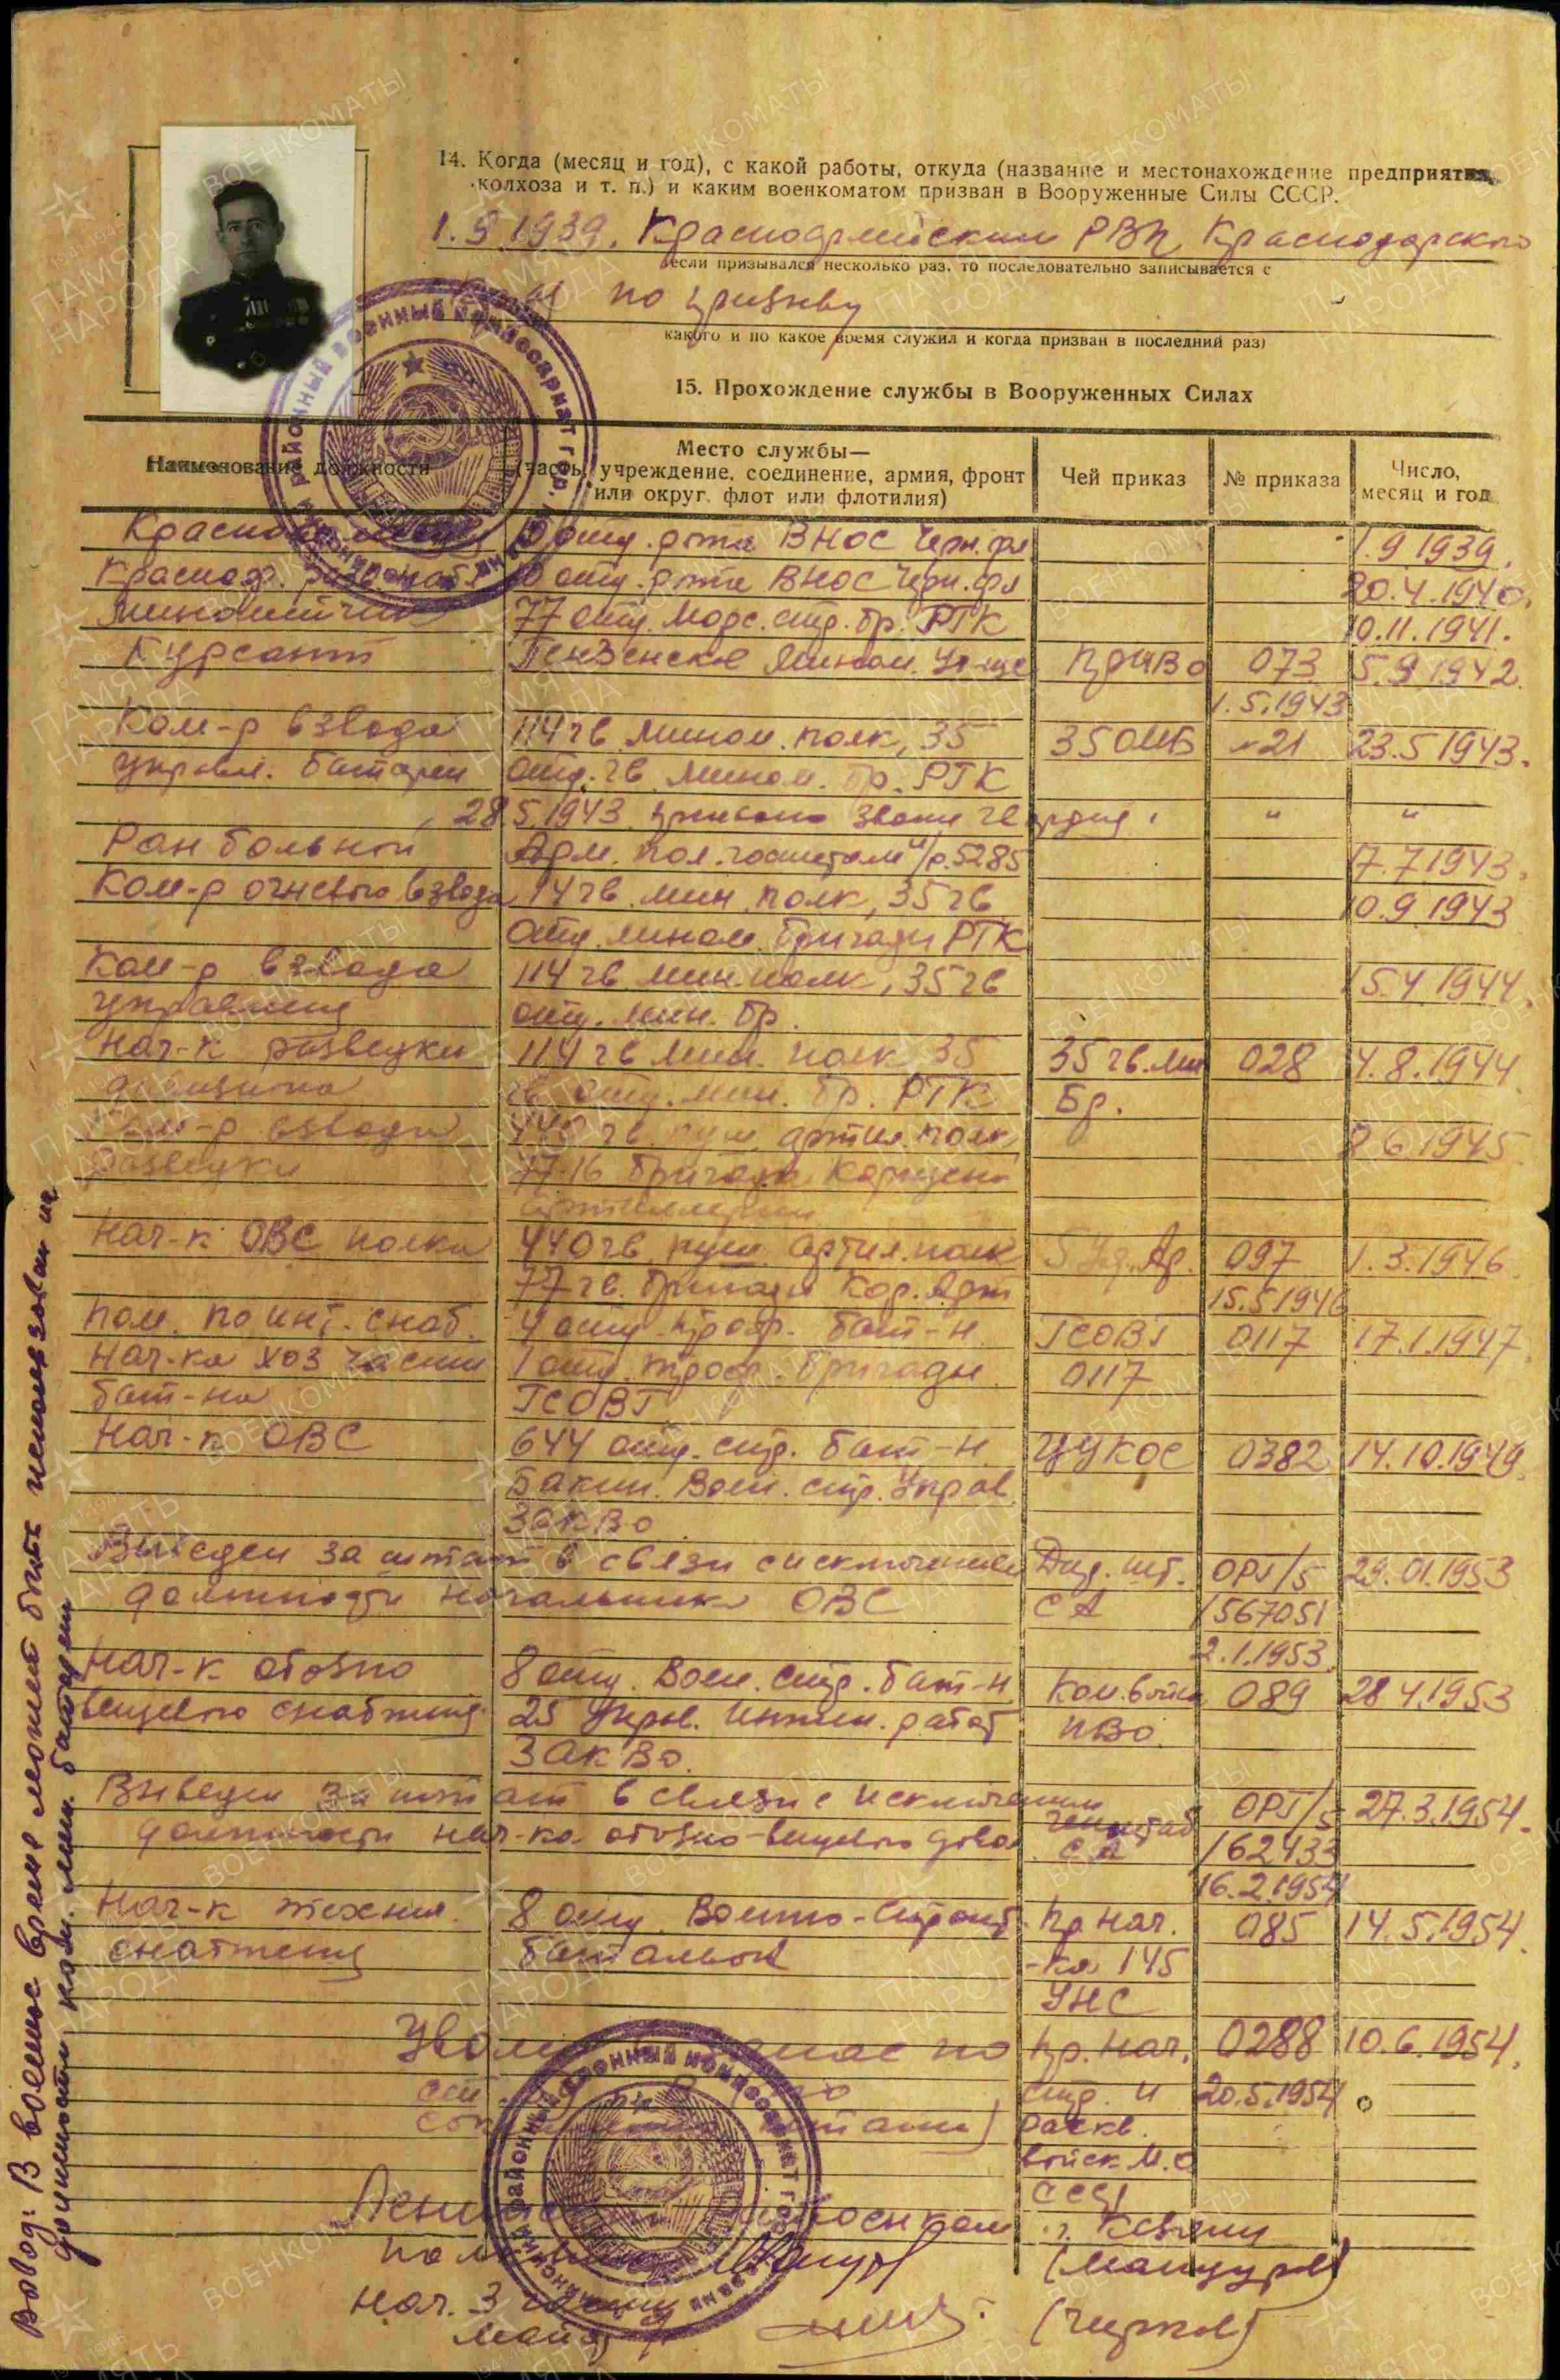 14. Когда (месяц и год), с какой работы, откуда (название и местонахождение предприятия,
колхоза и т. п.) и каким военкоматом призван в Вооруженные Силы СССР.
1.9.1939. Красноармейским РВК Краснодарского
если призывался несколько раз, то последовательно записывается с
по призыву
какого и по какое время служил и когда призван в последний раз)
15. Прохождение службы в Вооруженных Силах
Наименование должности
Место службы—
(часть, учреждение, соединение, армия, фронт
или округ, флот или флотилия)
Чей приказ
№ приказа
Число,
месяц и год
отд. рота ВНОС Черн. фл 1.9 1939.
Красноф. отд. рота ВНОС Черн. фл 20.4.1940.
Минометчик 77 отд. Морс. стр. бр. РГК 10.11.1941.
Курсант Пензенское Мином. Уч-ще ПриВо 073 5.9 1942.
1.5.1943
Ком-р взвода 114 гв. Мином. полк, 35 35 ОМБ №21 23.5 1943.
управл. батареи отд. гв. Мином. бр. РГК
28 5.1943 присвоено звание гвардия " "
Ран больной Арм. пол. госпиталь п/р. 5285 17.7.1943.
Ком-р огневого взвода 114 гв. мин. полк, 35 гв 10.9.1943
отд. мином. бригады РГК
Ком-р взвода 114 гв. мин. полк, 35 гв 15.4 1944.
управления отд. мин. бр.
Нач-к разведки 114 гв мин. полк 35 35 гв. мин 028 4.8.1944
дивизиона гв. отд. мин. бр. РГК Бр.
Ком-р взвода 440 гв. пуш. артил. полк 6.1945
разведки бригада
артиллерии
Нач-к ОВС полка 440 гв. пуш. артил. полк 5 Уд. Ар. 097 1.3.1946
77 гв. бригады Кор. Арт 15.5 1946
Пом. по инт. снаб. 4 отд. троф. бат-н ГСОВГ 0117 17.1.1947.
Нач-ка хоз части 1 отд. троф. бригады 0117
бат-на ГСОВГ
Нач-к ОВС 644 отд. стр. бат-н ЦУКОС 0382 14.10.1949.
Бакин. Воен. стр. Управ.
ЗакВо
Выведен за штат в связи с исключением Дир. шт. ОРГ/5 29.01.1953
должности начальник ОВС СА /567051
2.1.1953.
Нач-к обозно 8 отд. Воен. стр. бат-н Ком. войск 089 28 4.1953
вещевого снабжения 25 Управ. Инжен. работ
ЗакВо.
Выведен за штат в связи с исключением Генштаб ОРГ/5 27.3.1954.
должности нач-ка обозно-вещевого СА /62433
16.2.1954
Нач-к технич. 8 отд. Военно-Строит. Пр. Нач. 085 14.5.1954.
снабжения батальон -ка 145
УНС
запас по Пр. Нач. 0288 10.6.1954.
стр. и 20.5.1954
штата) раскв.
войск М.О
СССР
полковник
Нач. 3 части
майор
Районный военный комиссариат гор.
Вывод: В военное время может быть использован на
должности ком. мин. батареи
ПАМЯТЬ НАРОДА
ВОЕНКОМАТЫ